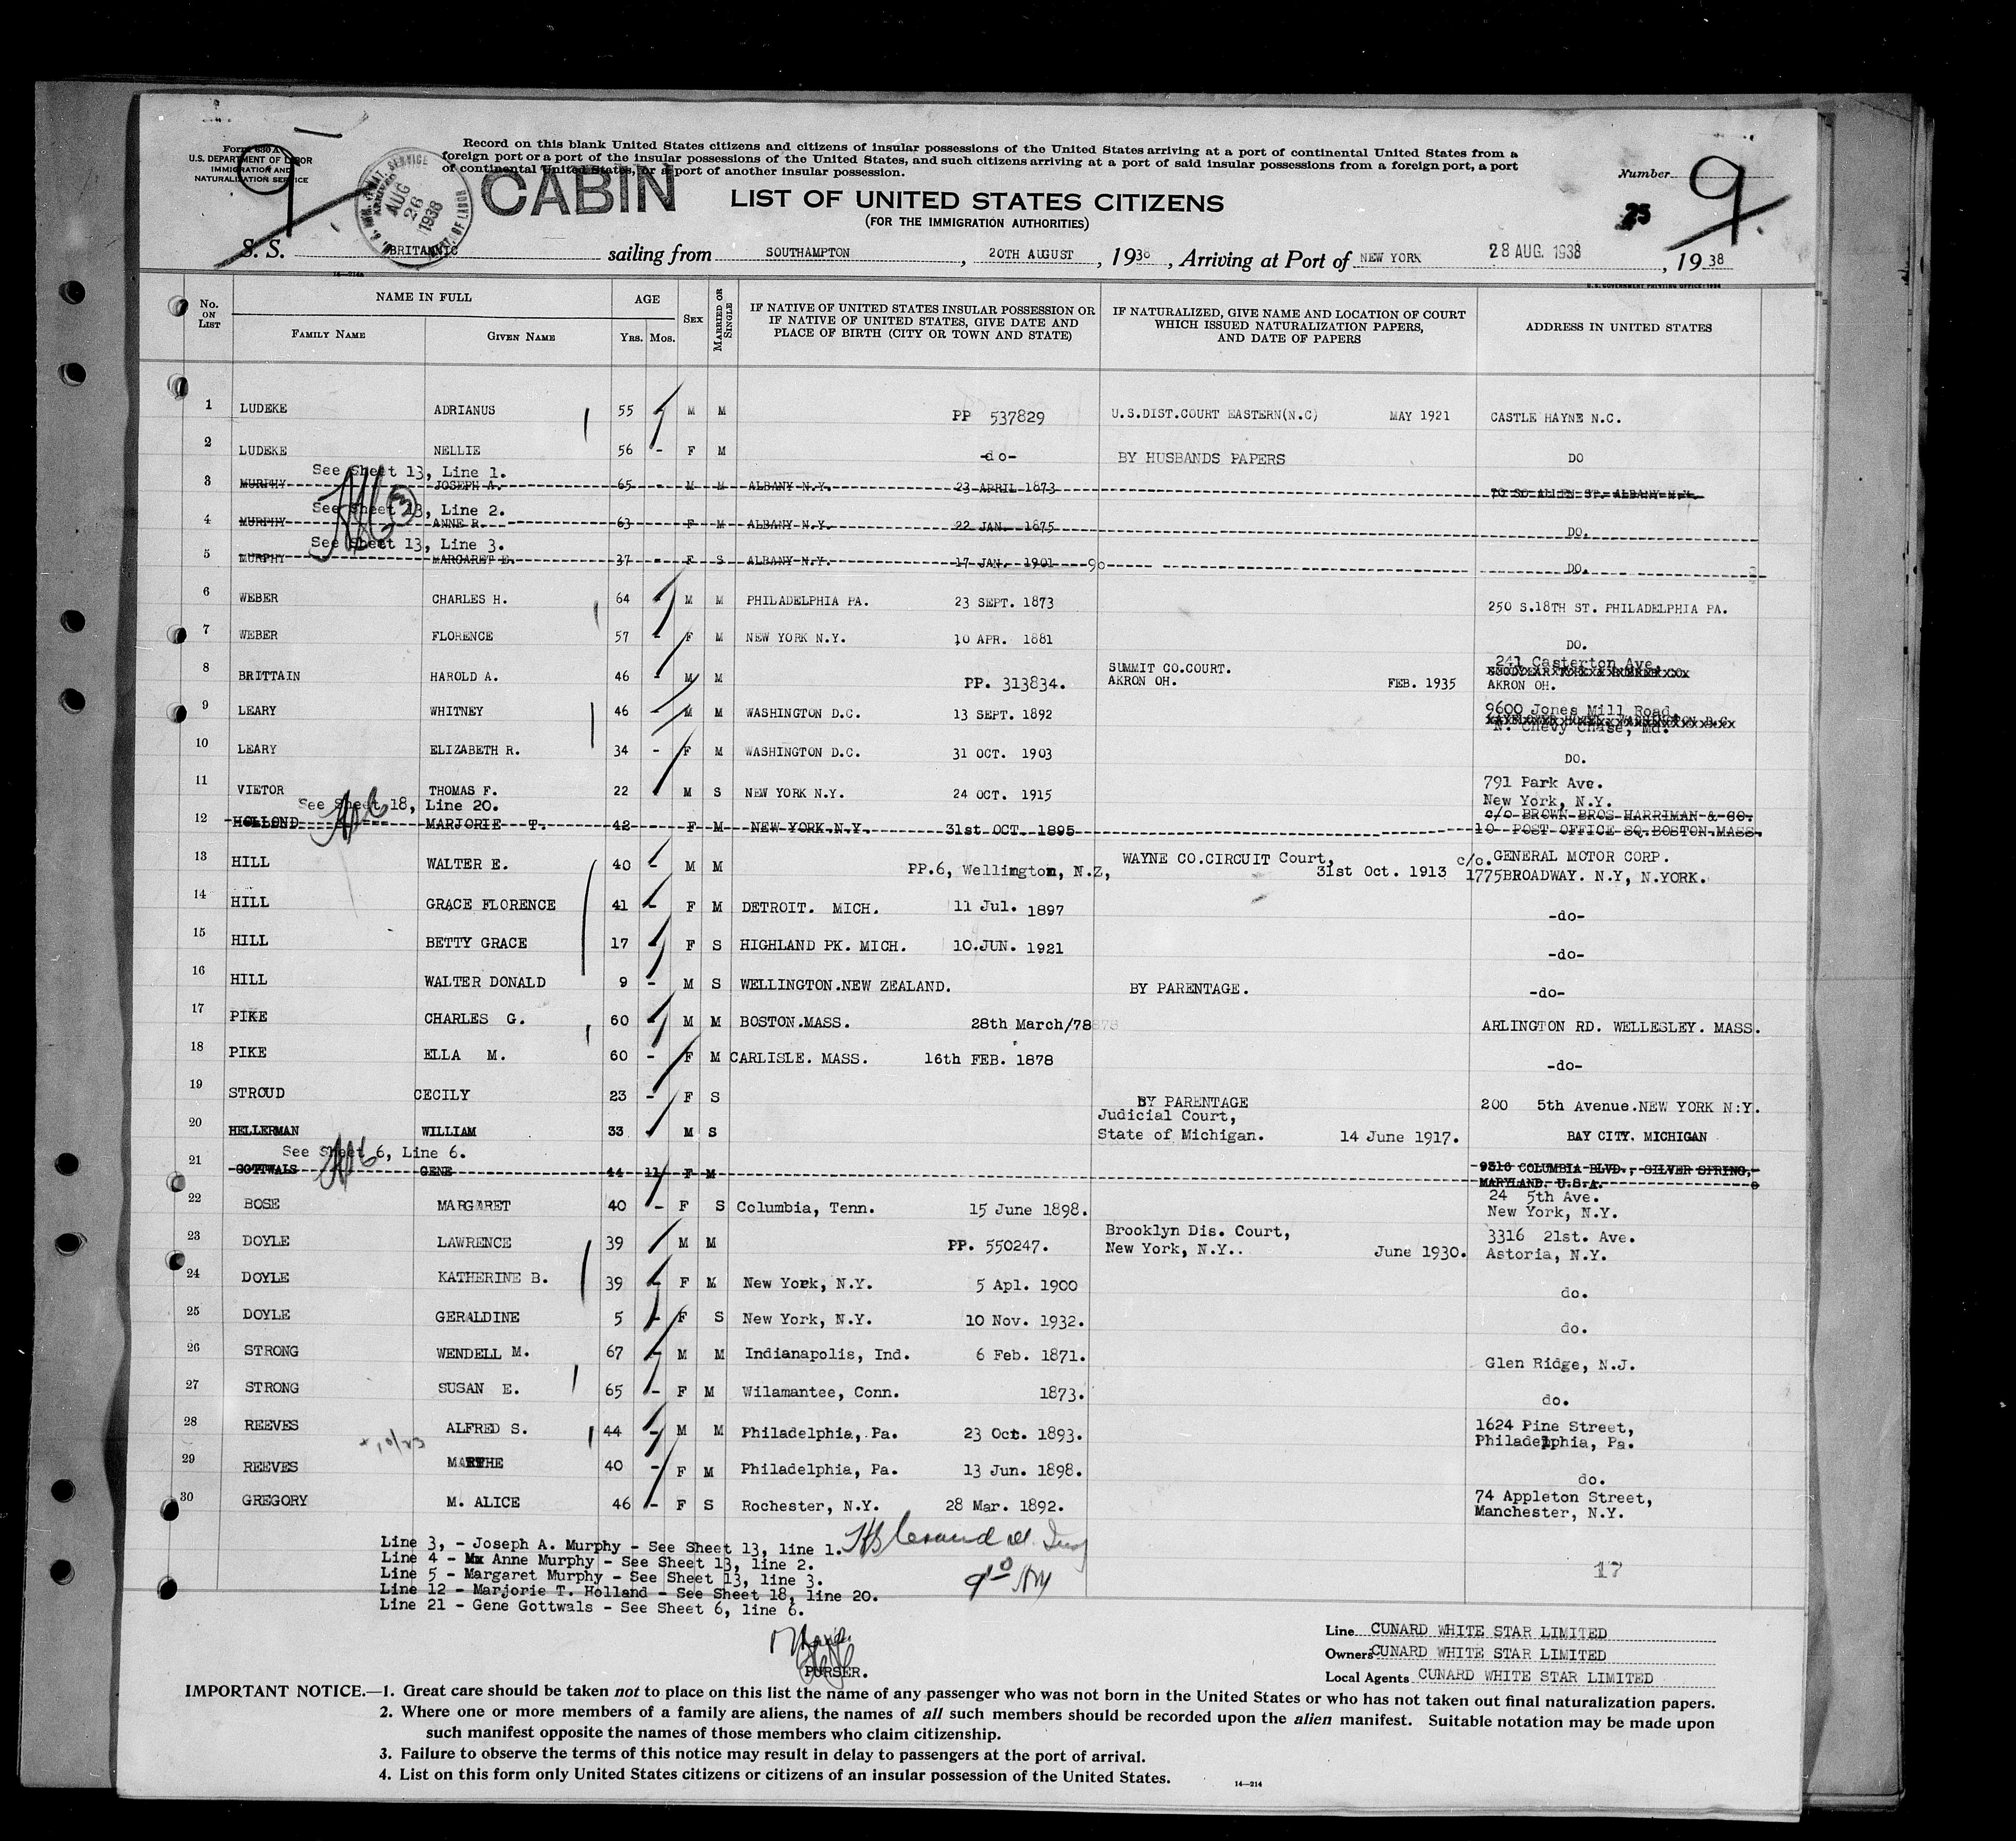 Form 630 A
U.S. DEPARTMENT OF LABOR
IMMIGRATION AND
NATURALIZATION SERVICE
9
ARRIVED
AUG 26 1938
CABIN
Record on this blank United States citizens and citizens of insular possessions of the United States arriving at a port of continental United States from a
foreign port or a port of the insular possessions of the United States, and such citizens arriving at a port of said insular possessions from a foreign port, a port
of continental United States, or a port of another insular possession.
LIST OF UNITED STATES CITIZENS
(FOR THE IMMIGRATION AUTHORITIES)
Number 9
S. S. BRITANNIC sailing from SOUTHAMPTON, 20TH AUGUST, 1938, Arriving at Port of NEW YORK 28 AUG. 1938, 1938
No. ON LIST
NAME IN FULL
FAMILY NAME
GIVEN NAME
AGE
YRS. MOS.
SEX
MARRIED OR SINGLE
IF NATIVE OF UNITED STATES INSULAR POSSESSION OR
IF NATIVE OF UNITED STATES, GIVE DATE AND
PLACE OF BIRTH (CITY OR TOWN AND STATE)
IF NATURALIZED, GIVE NAME AND LOCATION OF COURT
WHICH ISSUED NATURALIZATION PAPERS,
AND DATE OF PAPERS
ADDRESS IN UNITED STATES
1 LUDEKE ADRIANUS 55 M M PP 537829 U.S.DIST.COURT EASTERN(N.C) MAY 1921 CASTLE HAYNE N.C.
2 LUDEKE NELLIE 56 - F M -do- BY HUSBANDS PAPERS DO
See Sheet 13, Line 1.
3 MURPHY JOSEPH A. 65 - M M ALBANY N.Y. 23 APRIL 1873 70 SO ALLEN ST. ALBANY N.Y.
See Sheet 13, Line 2.
4 MURPHY ANNE R. 63 F M ALBANY N.Y. 22 JAN. 1875 DO.
See Sheet 13, Line 3.
5 MURPHY MARGARET E. 37 - F S ALBANY N.Y. 17 JAN. 1901 DO.
6 WEBER CHARLES H. 64 - M M PHILADELPHIA PA. 23 SEPT. 1873 250 S.18TH ST. PHILADELPHIA PA.
7 WEBER FLORENCE 57 - F M NEW YORK N.Y. 10 APR. 1881 DO.
8 BRITTAIN HAROLD A. 46 - M M PP. 313834. SUMMIT CO.COURT. AKRON OH. FEB. 1935 241 Casterton Ave,
GOODYEAR TYRE & RUBBER CO
AKRON OH.
9 LEARY WHITNEY 46 - M M WASHINGTON D.C. 13 SEPT. 1892 9600 Jones Mill Road,
MAYFLOWER HOTEL WASHINGTON D.C.
N. Chevy Chase, Md.
10 LEARY ELIZABETH R. 34 - F M WASHINGTON D.C. 31 OCT. 1903 DO.
11 VIETOR THOMAS F. 22 M S NEW YORK N.Y. 24 OCT. 1915 791 Park Ave.
New York, N.Y.
See Sheet 18, Line 20.
12 HOLLOND MARJORIE T. 42 F M NEW YORK N.Y. 31st OCT. 1895 c/o BROWN BROS HARRIMAN & CO.
10 POST OFFICE SQ.BOSTON.MASS.
13 HILL WALTER E. 40 - M M PP.6, Wellington, N.Z, WAYNE CO.CIRCUIT Court, 31st Oct. 1913 c/o. GENERAL MOTOR CORP.
1775BROADWAY. N.Y, N.YORK.
14 HILL GRACE FLORENCE 41 - F M DETROIT. MICH. 11 Jul. 1897 -do-
15 HILL BETTY GRACE 17 - F S HIGHLAND PK. MICH. 10.JUN. 1921 -do-
16 HILL WALTER DONALD 9 - M S WELLINGTON.NEW ZEALAND. BY PARENTAGE. -do-
17 PIKE CHARLES G. 60 - M M BOSTON.MASS. 28th March/78 ARLINGTON RD. WELLESLEY. MASS.
18 PIKE ELLA M. 60 - F M CARLISLE. MASS. 16th FEB. 1878 -do-
19 STROUD CECILY 23 - F S BY PARENTAGE 200 5th Avenue.NEW YORK N:Y.
20 HELLERMAN WILLIAM 33 M S Judicial Court,
State of Michigan. 14 June 1917. BAY CITY. MICHIGAN
See Sheet 6, Line 6.
21 GOTTWALS GENE 44 11 F M 9316 COLUMBIA BLVD., SILVER SPRING,
MARYLAND. U.S.A.
22 BOSE MARGARET 40 - F S Columbia, Tenn. 15 June 1898. 24 5th Ave.
New York, N.Y.
23 DOYLE LAWRENCE 39 M M PP. 550247. Brooklyn Dis. Court,
New York, N.Y.. June 1930. 3316 21st. Ave.
Astoria, N.Y.
24 DOYLE KATHERINE B. 39 - F M New York, N.Y. 5 Apl. 1900 do.
25 DOYLE GERALDINE 5 - F S New York, N.Y. 10 Nov. 1932. do.
26 STRONG WENDELL M. 67 - M M Indianapolis, Ind. 6 Feb. 1871. Glen Ridge, N.J.
27 STRONG SUSAN E. 65 - F M Wilamantee, Conn. 1873. do.
28 REEVES ALFRED S. 44 - M M Philadelphia, Pa. 23 Oct. 1893. 1624 Pine Street,
Philadelphia, Pa.
29 REEVES MARTHE 40 - F M Philadelphia, Pa. 13 Jun. 1898. do.
30 GREGORY M. ALICE 46 - F S Rochester, N.Y. 28 Mar. 1892. 74 Appleton Street,
Manchester, N.Y.
Line 3, - Joseph A. Murphy - See Sheet 13, line 1.
Line 4 - Anne Murphy - See Sheet 13, line 2.
Line 5 - Margaret Murphy - See Sheet 13, line 3.
Line 12 - Marjorie T. Holland - See Sheet 18, line 20.
Line 21 - Gene Gottwals - See Sheet 6, line 6.
17
PURSER.
Line CUNARD WHITE STAR LIMITED
Owners CUNARD WHITE STAR LIMITED
Local Agents CUNARD WHITE STAR LIMITED
IMPORTANT NOTICE.—1. Great care should be taken not to place on this list the name of any passenger who was not born in the United States or who has not taken out final naturalization papers.
2. Where one or more members of a family are aliens, the names of all such members should be recorded upon the alien manifest. Suitable notation may be made upon
such manifest opposite the names of those members who claim citizenship.
3. Failure to observe the terms of this notice may result in delay to passengers at the port of arrival.
4. List on this form only United States citizens or citizens of an insular possession of the United States.
14—214